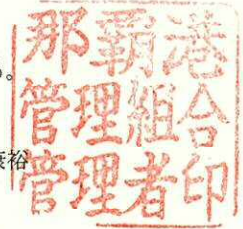 那覇港
管理組合
管理者印
。
裕